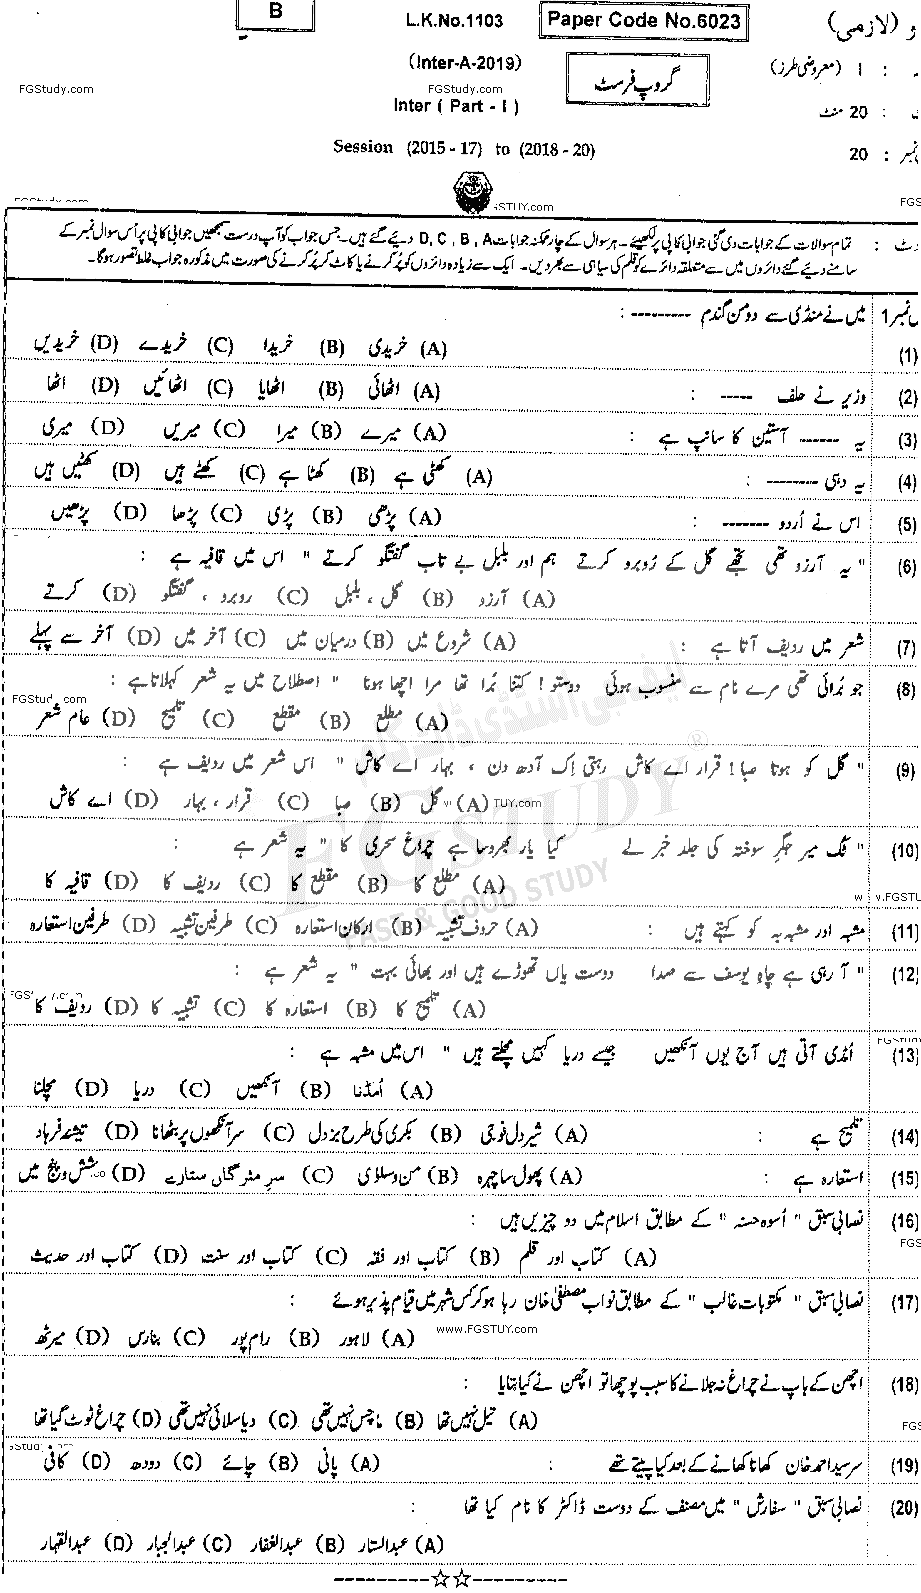 B
L.K.No.1103
Paper Code No.6023
و (لازمی)
(Inter-A-2019)
گروپ فرسٹ
: I (معروضی طرز)
FGStudy.com
FGStudy.com
Inter ( Part - I )
: 20 منٹ
Session (2015 - 17) to (2018 - 20)
نمبر : 20
FGStudy.com
GSTUY.com
FGS
وٹ : تمام سوالات کے جوابات دی گئی جوابی کاپی پر لکھیئے۔ ہر سوال کے چار ممکنہ جوابات D, C, B, A دیئے گئے ہیں۔ جس جواب کو آپ درست سمجھیں جوابی کاپی پر اُس سوال نمبر کے
سامنے دیئے گئے دائروں میں سے متعلقہ دائرے کو قلم کی سیاہی سے بھر دیں۔ ایک سے زیادہ دائروں کو پُر کرنے یا کاٹ کر پُر کرنے کی صورت میں مذکورہ جواب غلط تصور ہوگا۔
نمبر1 میں نے منڈی سے دو من گندم --------- :
(1) (A) خریدی (B) خریدا (C) خریدے (D) خریدیں
(2) وزیر نے حلف ----- : (A) اٹھائی (B) اٹھایا (C) اٹھائیں (D) اٹھا
(3) یہ ------ آستین کا سانپ ہے : (A) میرے (B) میرا (C) میریں (D) میری
(4) یہ دہی -------- : (A) کھٹی ہے (B) کھٹا ہے (C) کھٹے ہیں (D) کھٹیں ہیں
(5) اس نے اُردو ------- : (A) پڑھی (B) پڑی (C) پڑھا (D) پڑھیں
(6) " یہ آرزو تھی تجھے گل کے رُوبرو کرتے ہم اور بلبل بے تاب گفتگو کرتے " اس میں قافیہ ہے :
(A) آرزو (B) گل ، بلبل (C) روبرو ، گفتگو (D) کرتے
(7) شعر میں ردیف آتا ہے : (A) شروع میں (B) درمیان میں (C) آخر میں (D) آخر سے پہلے
(8) جو بُرائی تھی مرے نام سے منسوب ہوئی دوستو! کتنا بُرا تھا مرا اچھا ہونا " اصطلاح میں یہ شعر کہلاتا ہے :
FGStudy.com
(A) مطلع (B) مقطع (C) تلمیح (D) عام شعر
(9) " گل کو ہوتا صبا! قرار اے کاش رہتی اِک آدھ دن ، بہار اے کاش " اس شعر میں ردیف ہے :
(A) گل (B) صبا (C) قرار ، بہار (D) اے کاش
TUY.com
(10) " ٹک میر جگر سوختہ کی جلد خبر لے کیا یار بھروسا ہے چراغ سحری کا " یہ شعر ہے :
(A) مطلع کا (B) مقطع کا (C) ردیف کا (D) قافیہ کا
FGSTUDY
EASY & GOOD STUDY
w v.FGSTU
(11) مشبہ اور مشبہ بہ کو کہتے ہیں : (A) حروف تشبیہ (B) ارکان استعارہ (C) طرفین تشبیہ (D) طرفین استعارہ
(12) " آ رہی ہے چاہِ یوسف سے صدا دوست یاں تھوڑے ہیں اور بھائی بہت " یہ شعر ہے :
(A) تلمیح کا (B) استعارہ کا (C) تشبیہ کا (D) ردیف کا
(13) اُمڈی آتی ہیں آج یوں آنکھیں جیسے دریا کہیں مچلتے ہیں " اس میں مشبہ ہے :
FGStudy
(A) اُمڈنا (B) آنکھیں (C) دریا (D) مچلنا
(14) تلمیح ہے : (A) شیر دل فوجی (B) بکری کی طرح بزدل (C) سر آنکھوں پر بٹھانا (D) تیشۂ فرہاد
(15) استعارہ ہے : (A) پھول سا چہرہ (B) من و سلویٰ (C) سرِ مژگاں ستارے (D) شش و پنج میں
(16) نصابی سبق " اُسوہ حسنہ " کے مطابق اسلام میں دو چیزیں ہیں :
FGS
(A) کتاب اور قلم (B) کتاب اور فقہ (C) کتاب اور سنت (D) کتاب اور حدیث
(17) نصابی سبق " مکتوبات غالب " کے مطابق نواب مصطفیٰ خان رہا ہو کر کس شہر میں قیام پذیر ہوئے :
(A) لاہور (B) رام پور (C) بنارس (D) میرٹھ
www.FGSTUY.com
(18) اچھن کے باپ نے چراغ نہ جلانے کا سبب پوچھا تو اچھن نے کیا بتایا :
(A) تیل نہیں تھا (B) ماچس نہیں تھی (C) دیا سلائی نہیں تھی (D) چراغ ٹوٹ گیا تھا
FGS
(19) سرسید احمد خان کھانا کھانے کے بعد کیا پیتے تھے : (A) پانی (B) چائے (C) دودھ (D) کافی
(20) نصابی سبق " سفارش " میں مصنف کے دوست ڈاکٹر کا نام کیا تھا :
(A) عبدالستار (B) عبدالغفار (C) عبدالجبار (D) عبدالقہار